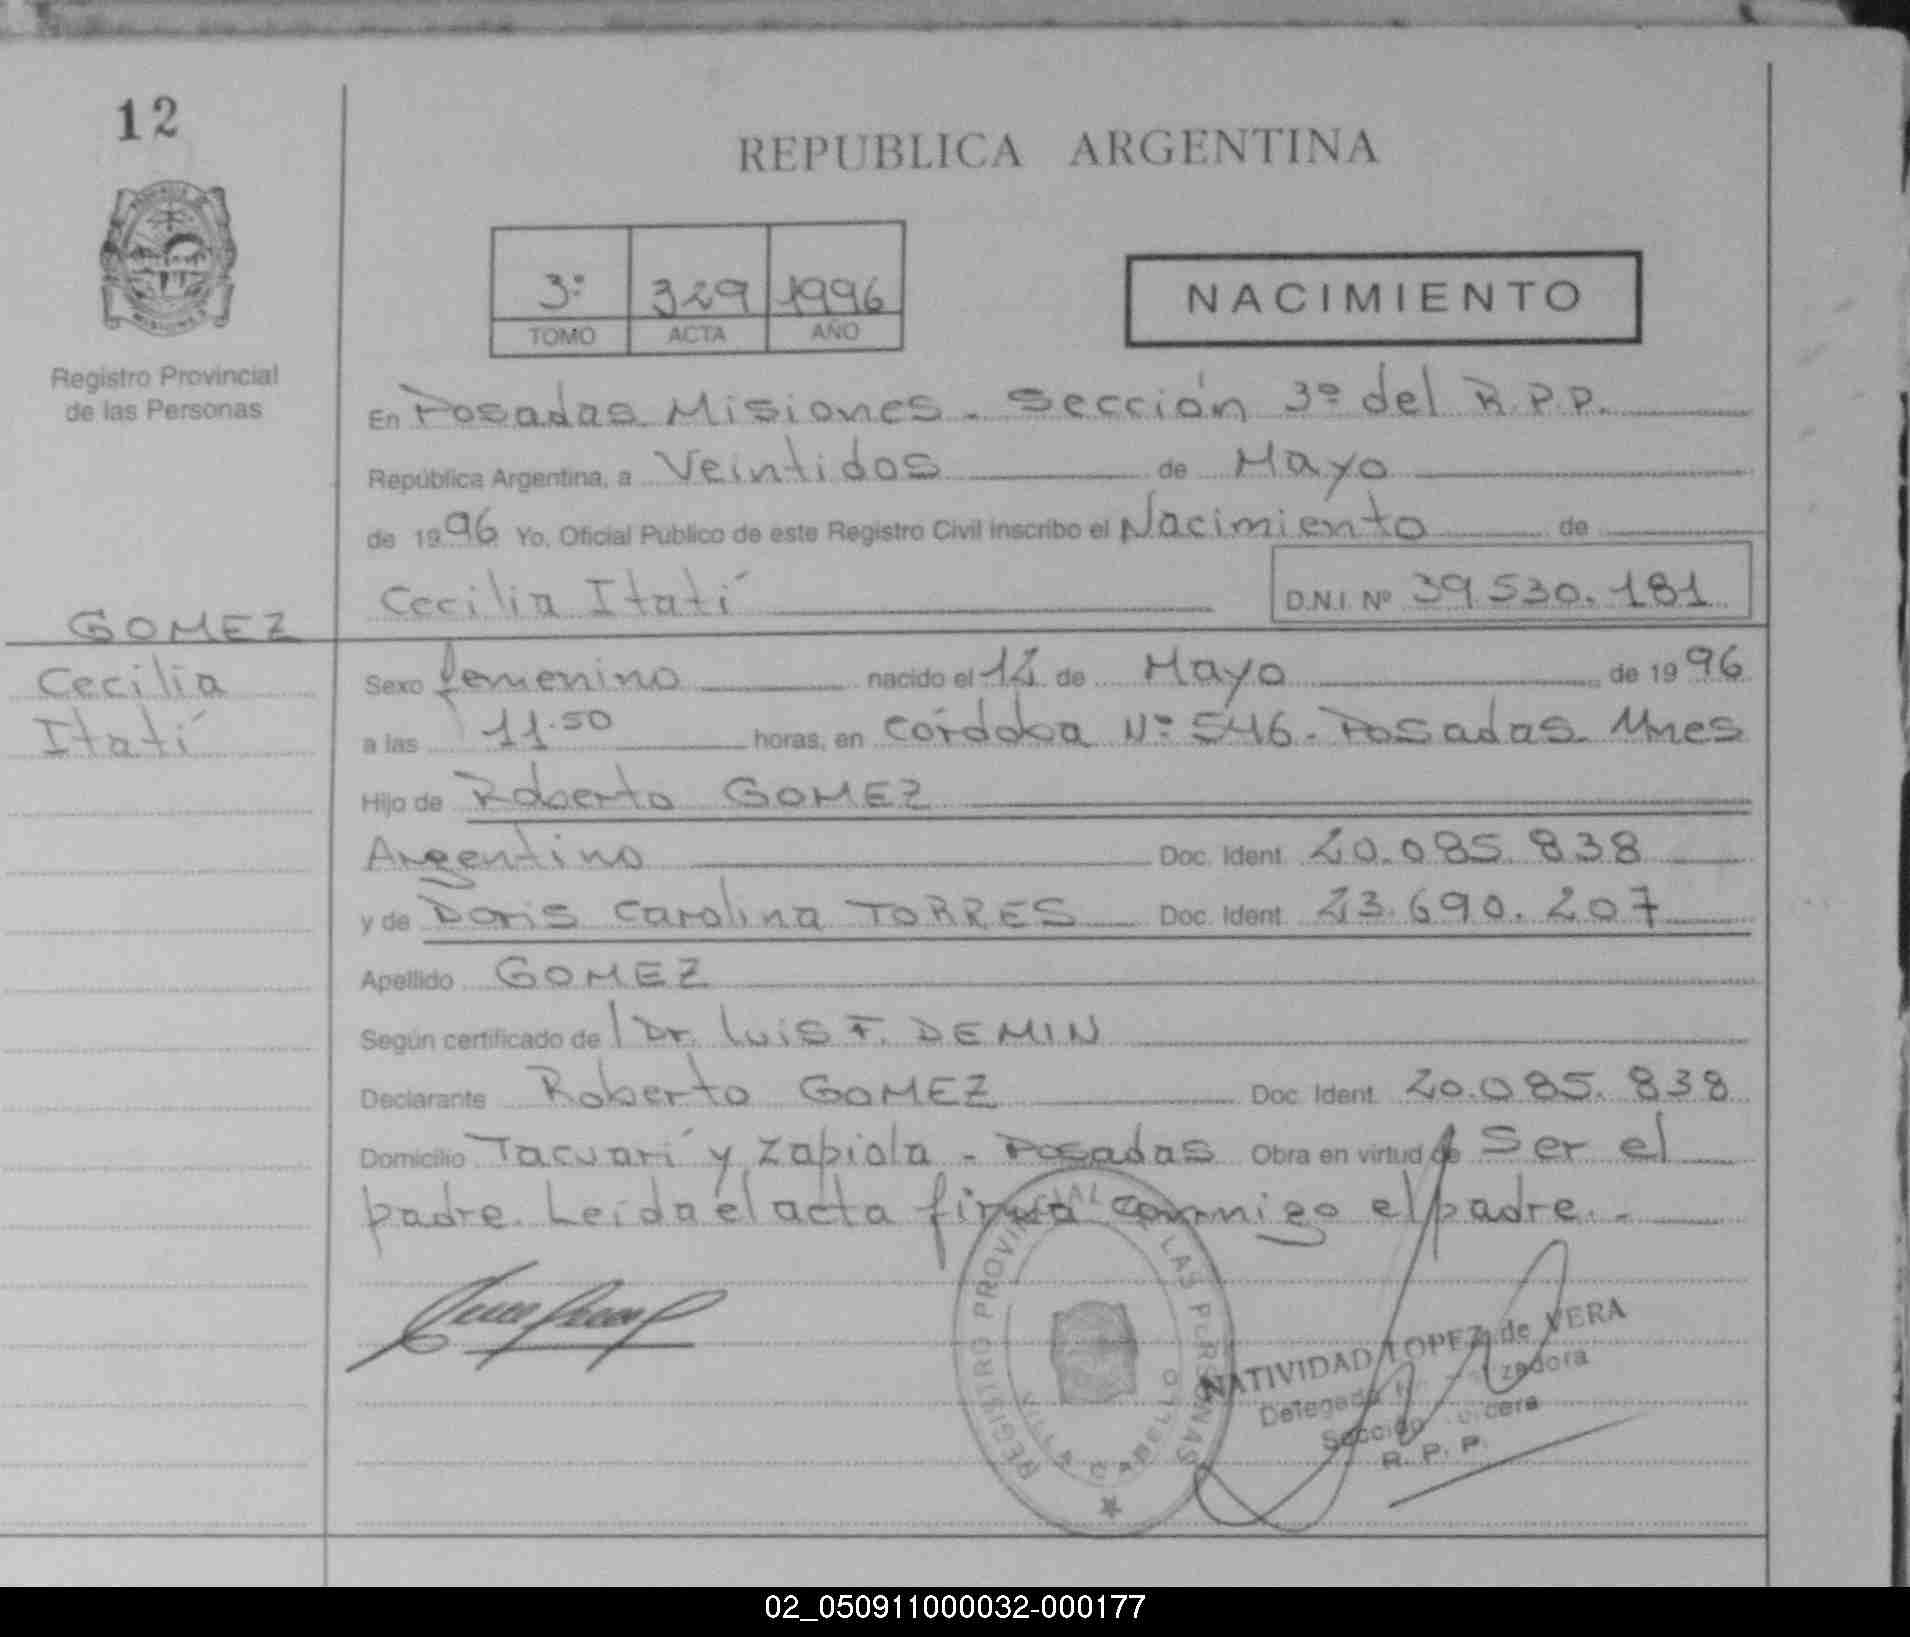 12
REPUBLICA ARGENTINA
3º 329 1996
TOMO ACTA AÑO
NACIMIENTO
MISIONES
Registro Provincial
de las Personas
En Posadas Misiones - Sección 3º del R.P.P.
República Argentina, a Veintidos de Mayo
de 1996 Yo, Oficial Publico de este Registro Civil inscribo el Nacimiento de
Cecilia Itatí D.N.I. Nº 39.530.181
GOMEZ
Cecilia
Itatí
Sexo femenino nacido el de Mayo de 1996
a las 11.50 horas, en Córdoba Nº 546 - Posadas - Mnes
Hijo de Roberto GOMEZ
Argentino Doc. Ident. 20.085.838
y de Doris Carolina TORRES Doc. Ident. 23.690.207
Apellido GOMEZ
Según certificado de Dr. Luis F. DEMIN
Declarante Roberto GOMEZ Doc. Ident. 20.085.838
Domicilio Tacuarí y Zapiola - Posadas Obra en virtud de Ser el
padre. Leída el acta firma conmigo el padre.-
REGISTRO PROVINCIAL LAS PERSONAS
VILLA CABELLO
NATIVIDAD LOPEZ de VERA
Delegada
Sección
R. P. P.
02_050911000032-000177